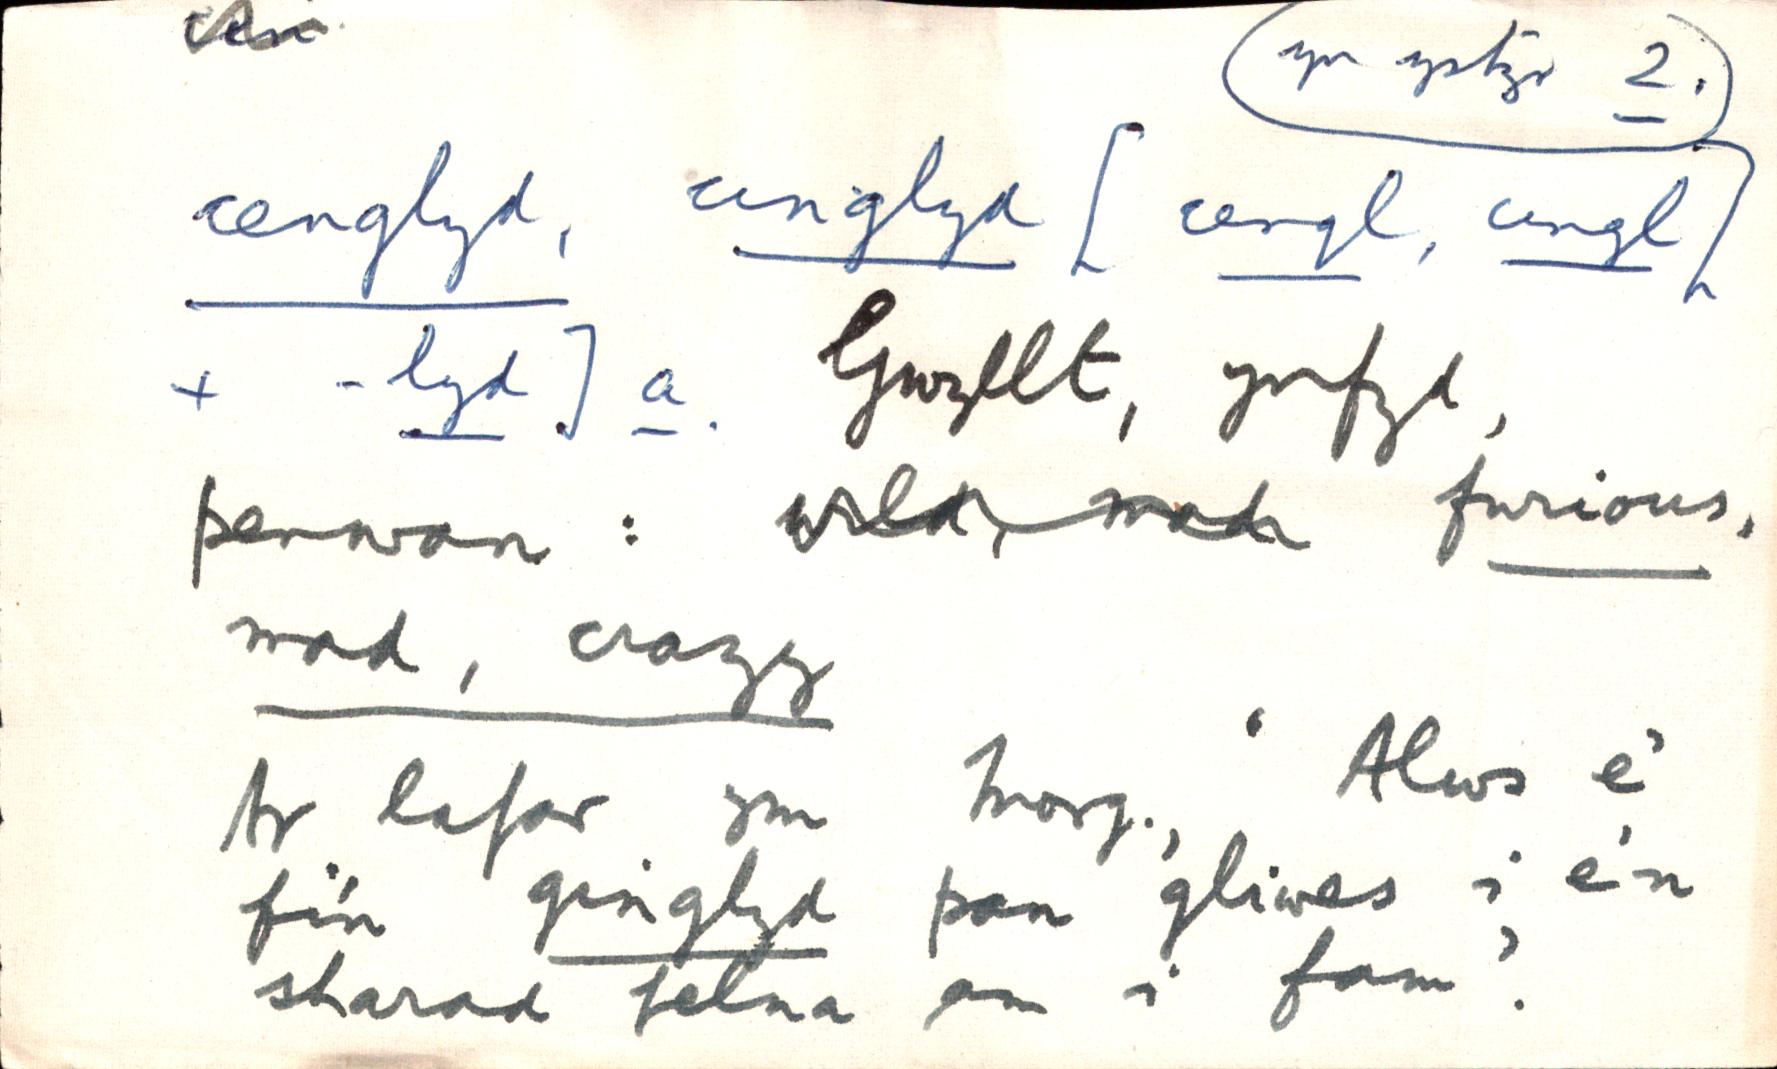 yn ystyr 2.
cenglyd, cinglyd [cengl, cingl
+ -lyd] a. Gwyllt, ynfyd,
penwan : wild, mad furious.
mad, crazy
Ar lafar ym Morg., ' Alws e'
fi'n ginglyd pan gliwes i e'n
sharad felna am i fam'.